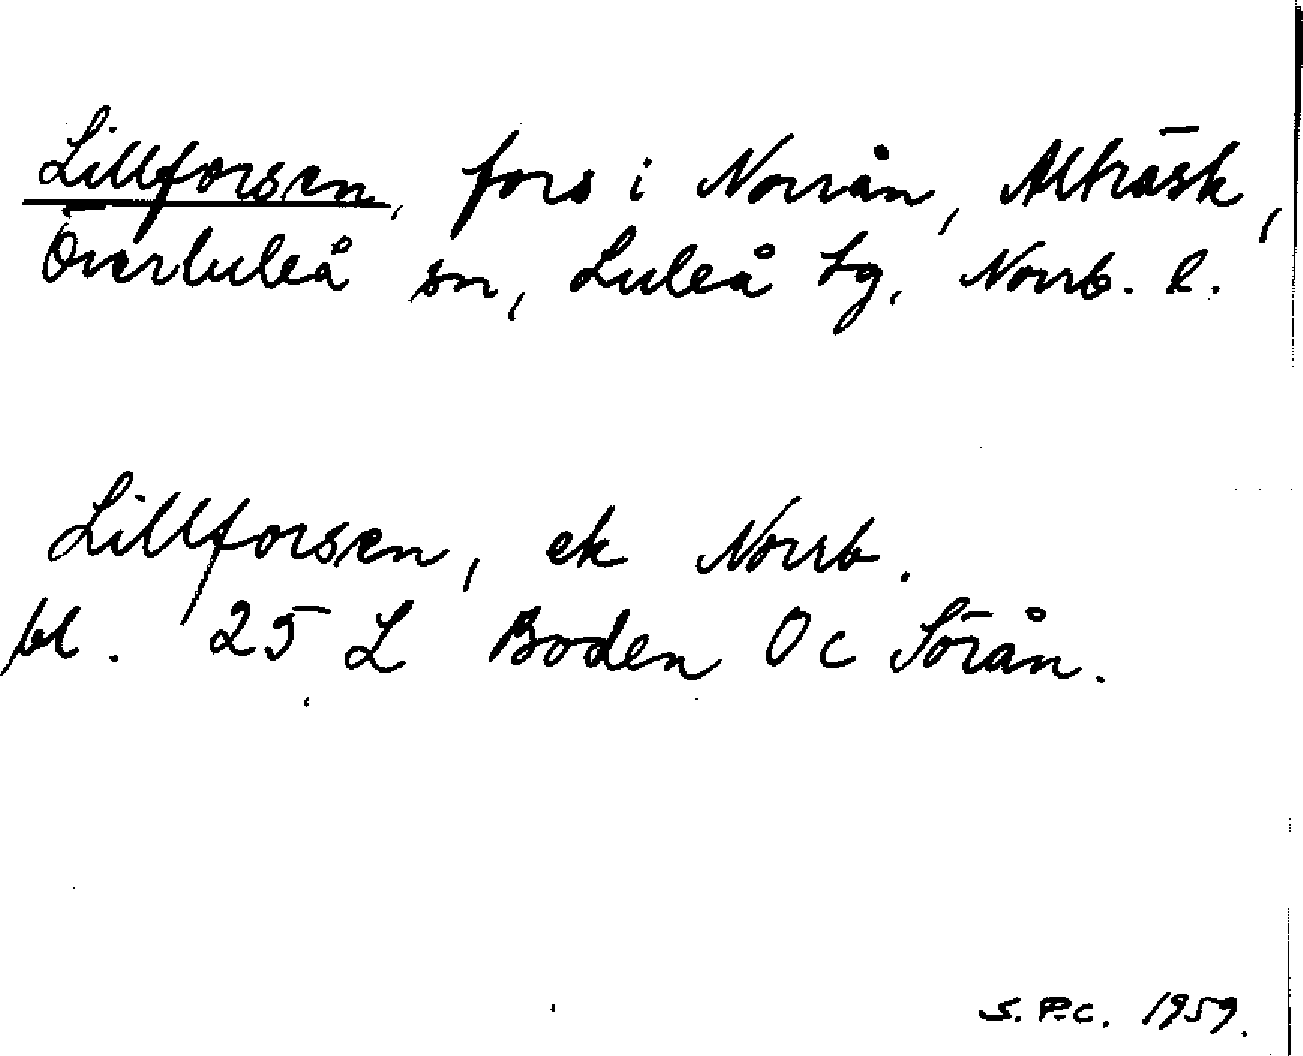 Lillforsen, fors i Norrån, Alträsk,
Överluleå sn, Luleå tg, Norrb. l.
Lillforsen, ek Norrb.
bl. 25 L Boden Oc Sörån.
S. P.c. 1959.